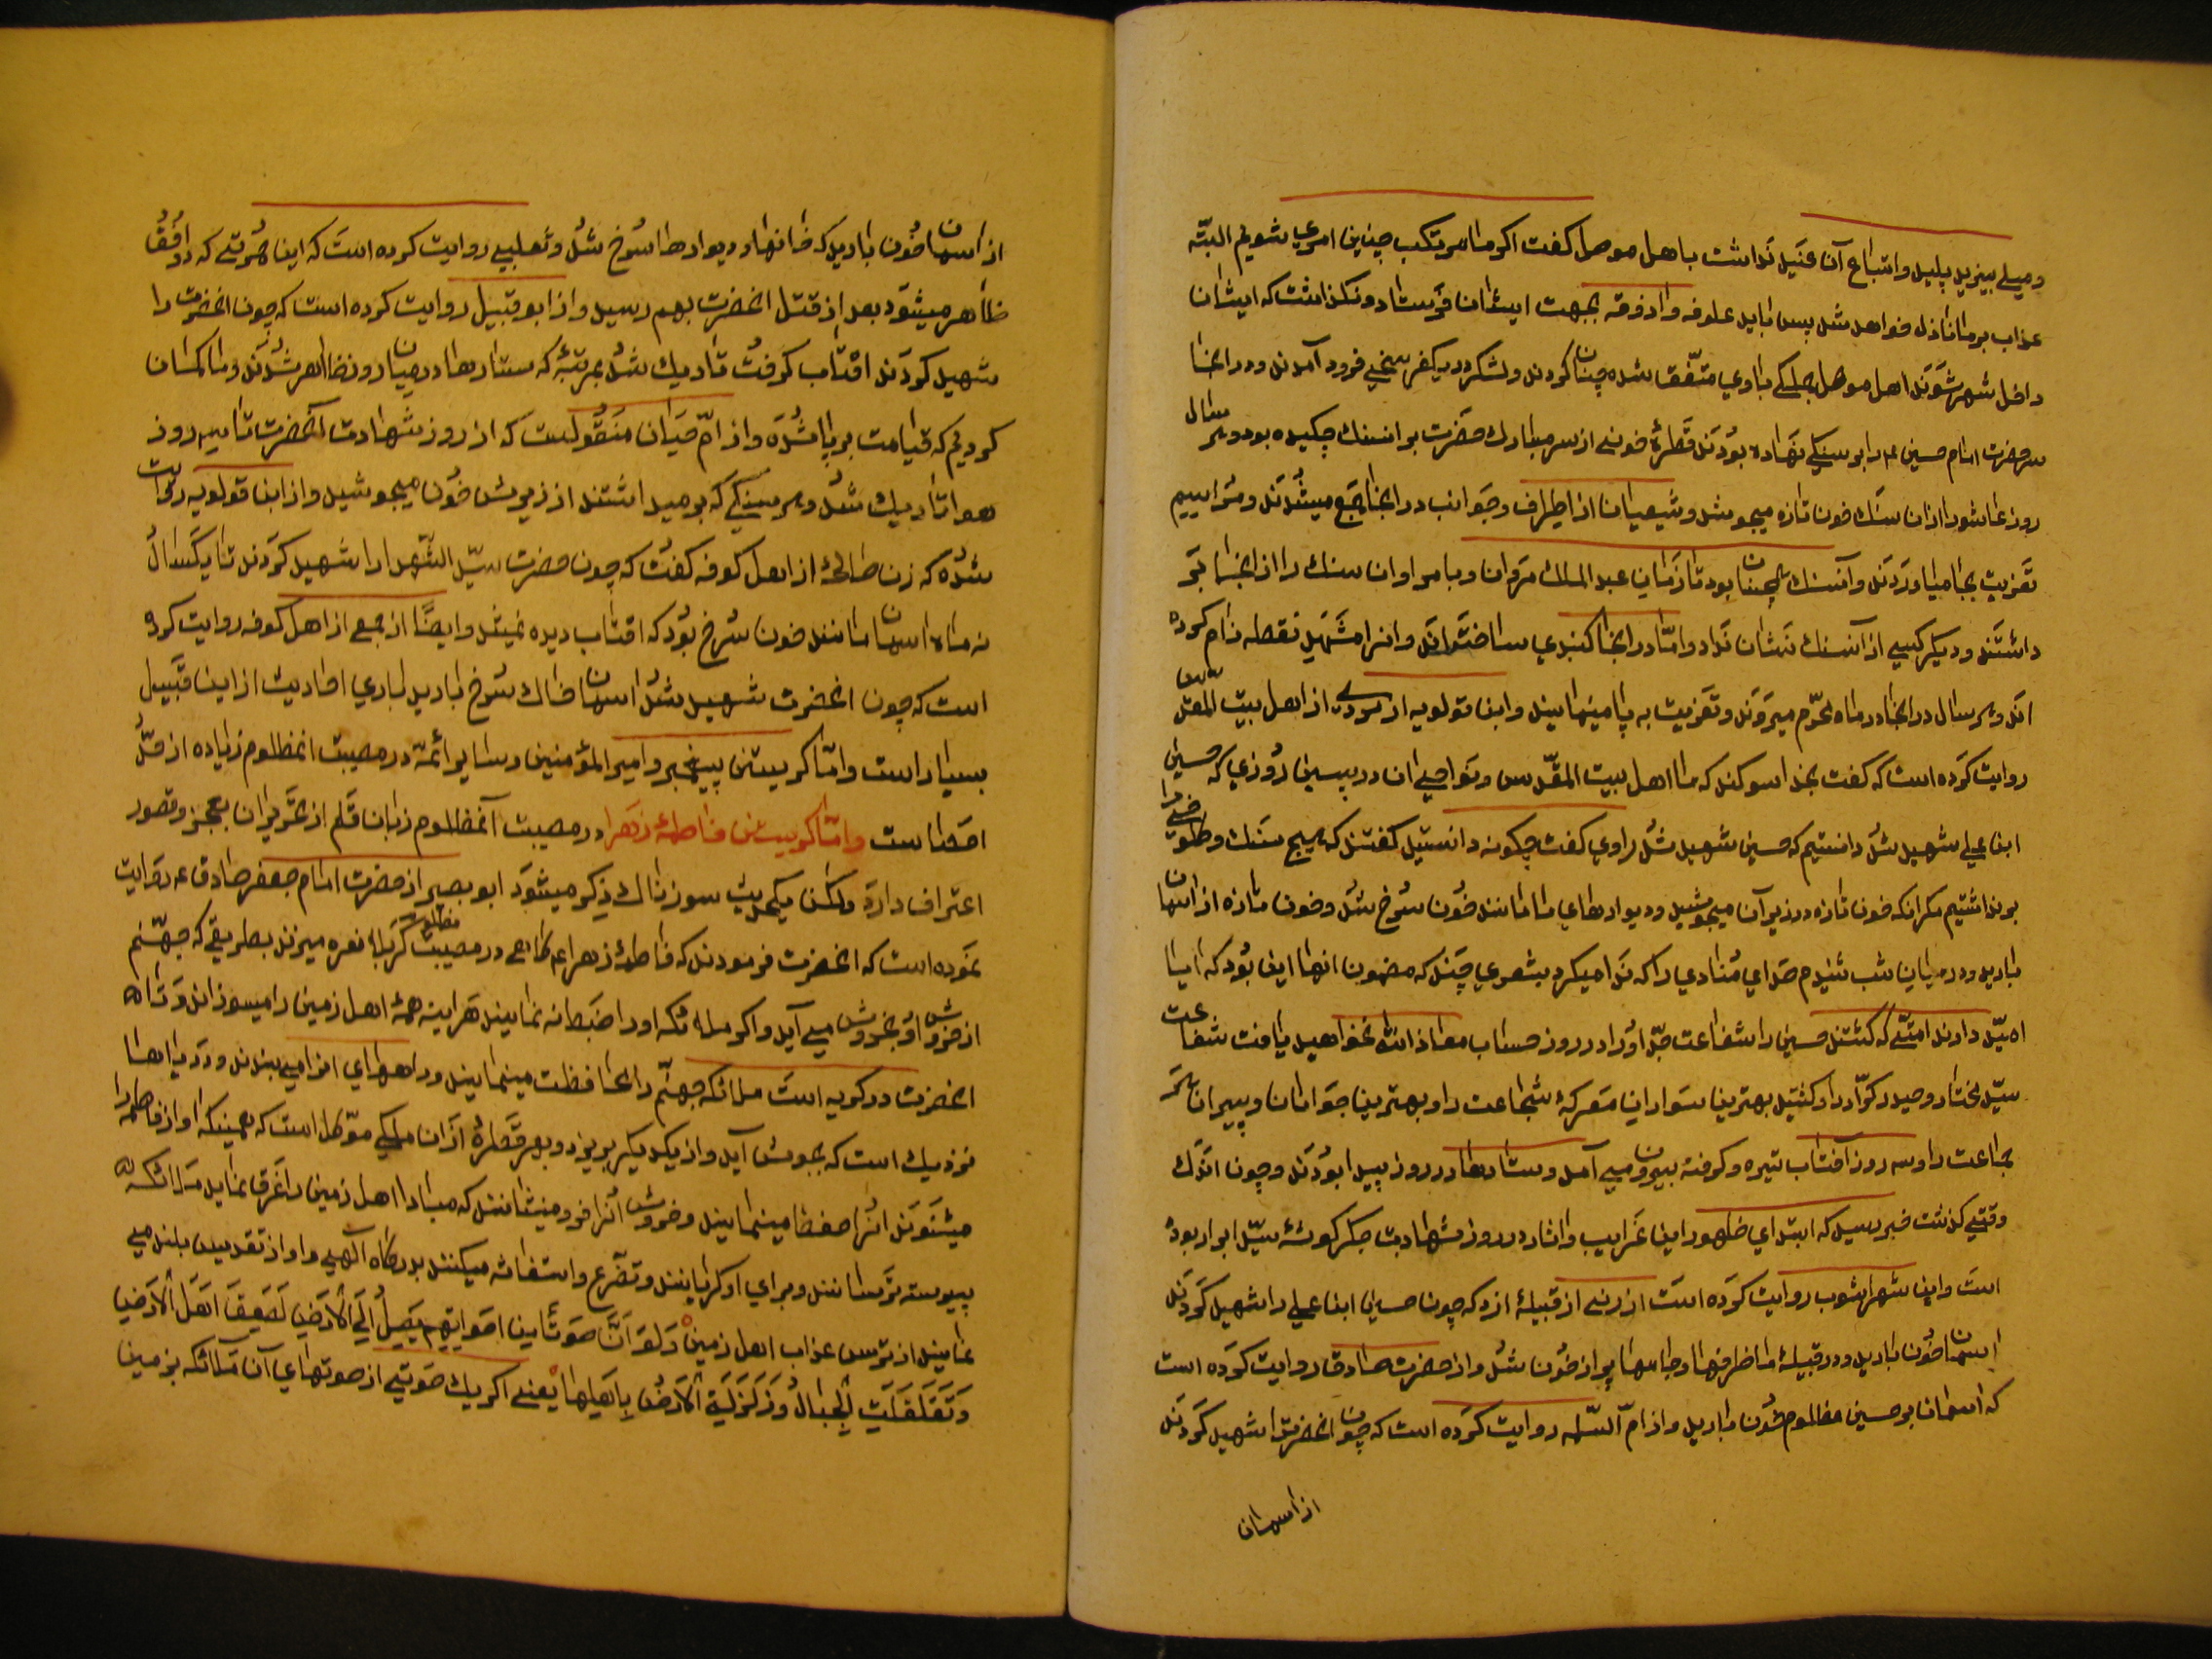 و میلے بیزید پلید و اتباع آن عنید نداشت با اهل موصل کفت اکر ما مرتکب چنین امری شویم البتّه
عذاب بر ما نازل خواهد شد پس باید علوفه و اذوقه بجهت ایشان فرستاد و نکذاشت که ایشان
داخل شهر شوند اهل موصل جملکے با وی متّفق شده چنان کردند و لشکر در یکفرسخے فرود آمدند و در انجا
سر حضرت امام حسین ع را بر سنکے نهاده بودند قطرهٔ خونے از سر مبارک حضرت بر انسنک چکیده بود و هر سال
روز عاشورا ازان سنک خون تازه میجوشد و شیعیان از اطراف و جوانب در انجا جمع میشدند و مراسیم
تعزیت بجا میاوردند و آنسنک همچنان بود تا زمان عبد الملک مروان و بامر او ان سنک را از انجا بر
داشتند و دیکر کسے از آنسنک نشان نداد و امّا در انجا کنبدی ساختواند و انرا مشهد نقطه نام کرده
اند و هر سال در انجا در ماه محرّم میروند و تعزیت به پا مینمایند و ابن قولویه از مردے از اهل بیت المقدّس
روایت کرده است که کفت بخدا سوکند که ما اهل بیت المقدّس و نواحے ان در پسین روزی که حسین
ابن علے شهید شد دانستیم که حسین شهید شد راوی کفت چکونه دانستید کفتند که هیچ سنک و کلوخے را
بر نداشتیم مکر انکه خون تازه در زیر آن میجوشید و دیوارهای ما مانند خون سرخ شد و خون تازه از اسمان
بارید و در میان شب شنیدم صدای منادی را که ندا میکرد بشعری چند که مضمون انها این بود که ایا
امید دارند امّتے که کشتند حسین را شفاعت جدّ او را در روز حساب معاذ الله نخواهید یافت شفاعت
سیّد مختار و حیدر کرّار را و کشتید بهترین سواران معرکهٔ شجاعت را و بهترین جوانان و پیران
جماعت را و سه روز آفتاب تیره و کرفته بیرون مے آمد و ستارها در روز پیدا بودند و چون اندک
وقتے کذشت خبر رسید که ابتدای ظهور این غرایب و اثار در روز شهادت جکر کوشهٔ سیّد ابرار بوده
است و ابن شهراشوب روایت کرده است از زنے از قبیلهٔ ازد که چون حسین ابن علے را شهید کردند
اسمان خون بارید و در قبیلهٔ ما ظرفها و جامها پر از خون شد و از حضرت صادق روایت کرده است
که اسمان بر حسین مظلوم خون بارید و از امّ السّلمه روایت کرده است که چون انحضرترا شهید کردند
از اسمان
از اسمان خون بارید که خانها و دیوارها سرخ شد و ثعلبے روایت کرده است که این حمرتے که در افق
ظاهر میشود بعد از قتل انحضرت بهم رسید و از ابو قبیل روایت کرده است که چون انحضرت را
شهید کردند افتاب کرفت تاریک شد بمرتبهٔ که ستارها در میان روز ظاهر شدند و ما کمان
کردیم که قیامت بر پا شده و از امّ حیان منقولست که از روز شهادت آنحضرت تا سه روز
هوا تاریک شد و هر سنکے که بر میداشتند از زیرش خون میجوشید و از ابن قولویه روایت
شده که زن صالحهٔ از اهل کوفه کفت که چون حضرت سیّد الشّهدا را شهید کردند تا یکسال
نه ماه اسمان مانند خون سرخ بود که افتاب دیده نمیشد و ایضًا از جمعے از اهل کوفه روایت کرده
است که چون انحضرت شهید شد اسمان خاک سرخ بارید باری احادیث از این قبیل
بسیار است و امّا کریستن پیغمبر و امیر المؤمنین و سایر ائمّه در مصیبت انمظلوم زیاده از حدّ
احصا است و امّا کریستن فاطمهٔ زهرا در مصیبت آنمظلوم زبان قلم از تحریران بعجز و قصور
اعتراف دارد ولکن یکحدیث سوزناک ذکر میشود ابو بصیر از حضرت امام جعفر صادق ع روایت
نموده است که انحضرت فرمودند که فاطمهٔ زهرا ع کاهے در مصیبت مظلوم کربلا نعره میزند بطریقے که جهنّم
از خروش او بخروش مے آید و اکر ملائکه او را ضبط نه نمایند هراینه همهٔ اهل زمین را میسوزاند و تا
انحضرت در کریه است ملائکه جهنّم را محافظت مینمایند و راههای انرا مے بندند و دریاها
نزدیک است که بجوش آید و از یکدیکر بریزد و بهر قطرهٔ ازان ملکے موّکل است که همینکه اواز فاطمه را
میشنوند انرا حفظ مینمایند و خروش انرا فرو مینشانند که مبادا اهل زمین را غرق نماید ملائکه
پیوسته ترسانند و برای او کریانند و تضرّع و استغاثه میکنند بدرکاه الهے و اواز تقدیس بلند مے
نمایند از ترس عذاب اهل زمین وَلَو اَنَّ صَوتًا مِن اَصواتِهِم یَصِلُ اِلَی الاَرضِ لَصَعِقَ اَهلُ الاَرضِ
وَ تَقَلقَلَتِ الجِبالُ وَ زَلزَلَةِ الاَرضُ بِاَهلِها یعنے اکر یک صوتے از صوتهای آن ملائکه بزمین